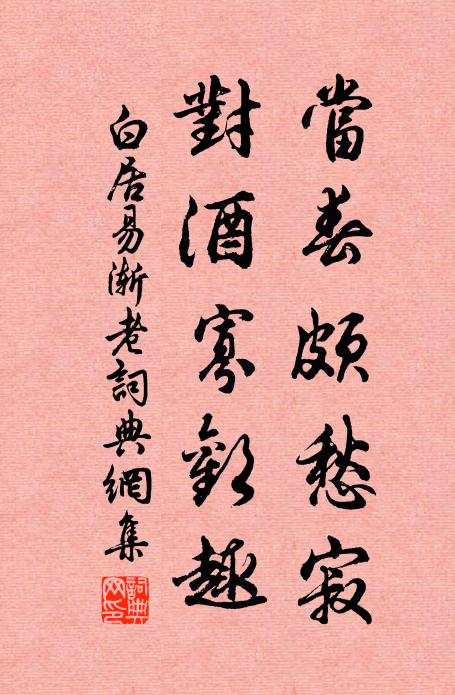 當春頗愁寂
對酒寡歡趣
白居易漸老詞典網集
詞典網印